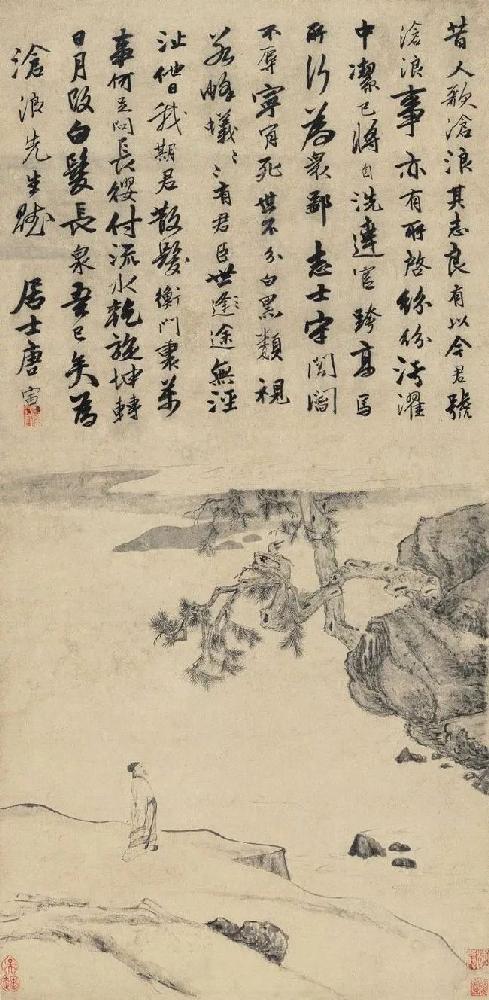 昔人歌滄浪其志良有以今君號
滄浪事亦有所啓紛紛清濁
中潔已將自洗達官跨高馬
所行為衆鄙志士守閭閻
不辱寧肯死世不分白黑類視
若蜂蟻〻〻有君臣世途無涇
沚他日我期君散髮衡門裏萬
事何足問長纓付流水乾旋坤轉
日月改白髮長泉吾已矣為
滄浪先生賦 居士唐寅